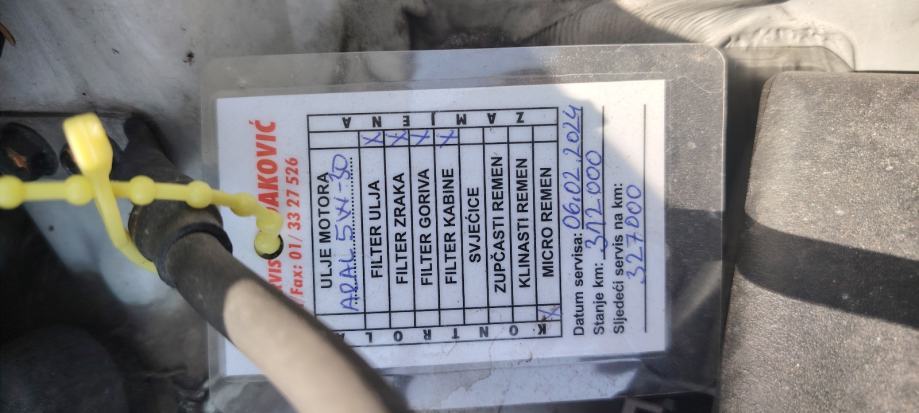 AKOVIĆ
Fax: 01/ 33 27 526
KONTROLA ZAMJENA
ULJE MOTORA
ARAL 5W-30
FILTER ULJA X
FILTER ZRAKA X
FILTER GORIVA X
FILTER KABINE X
SVJEĆICE
ZUPČASTI REMEN
KLINASTI REMEN
X MICRO REMEN
Datum servisa: 06.02.2024
Stanje km: 312.000
Sljedeći servis na km:
327000